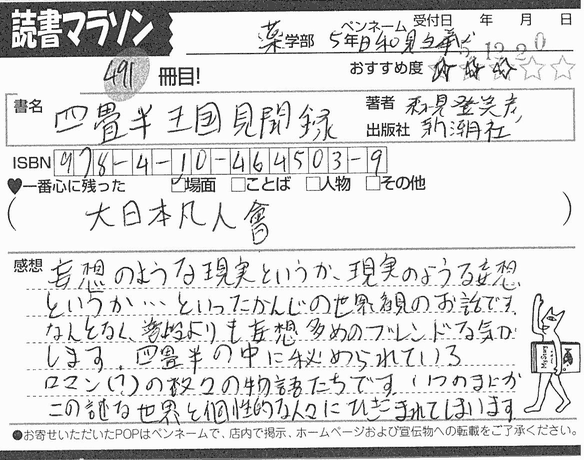 読書マラソン
受付日 年 月 日
薬学部 5年 ペンネーム
491 冊目!
おすすめ度 ☆☆☆☆☆
書名 四畳半王国見聞録
著者 森見登美彦
出版社 新潮社
ISBN 978-4-10-464503-9
♥一番心に残った ☑場面 □ことば □人物 □その他
(大日本凡人會)
感想 妄想のような現実というか、現実のような妄想
というか…といったかんじの世界観のお話です。
なんとなく、普段よりも妄想多めのブレンドな気が
します。四畳半の中に秘められている
ロマン(?)の数々の物語たちです。いつのまにか
この謎な世界と個性的な人々にひきこまれてしまいます
●お寄せいただいたPOPはペンネームで、店内で掲示、ホームページおよび宣伝物への転載をご了承ください。